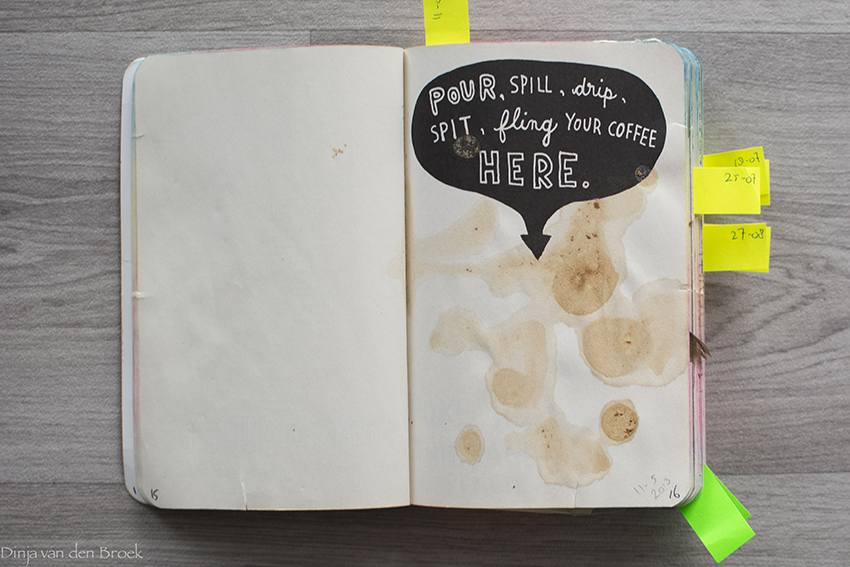 POUR, SPILL, drip,
SPIT, fling YOUR COFFEE
HERE.
19-07
25-07
27-08
15
11-5
2013
16
Dinja van den Broek